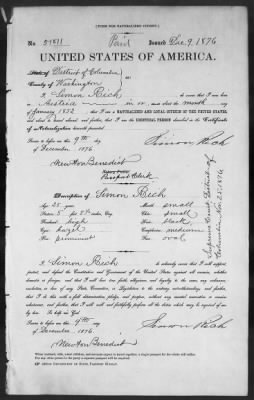 [FORM FOR NATURALIZED CITIZEN.]
No. 51811 Paid Issued Dec 9, 1876
UNITED STATES OF AMERICA.
State of District of Columbia
County of Washington
I, Simon Rich, do swear that I was born
in Austria in or about the month
of January 1852, that I am a NATURALIZED AND LOYAL CITIZEN OF THE UNITED STATES
and about to travel abroad, and further, that I am the IDENTICAL PERSON described in the Certificate
of Naturalization herewith presented.
Sworn to before me this 9th day
of December 1876
Simon Rich
Newton Benedict
Passport Clerk
Description of Simon Rich
Age: 25 years
Mouth: small
Stature: 5 feet
Chin: small
Hair: black
Forehead: high
Eyes: hazel
Complexion: medium
Nose: prominent
Face: oval
Supreme Court, District of
Columbia, Nov. 25, 1876
I, Simon Rich, do solemnly swear that I will support,
protect, and defend the Constitution and Government of the United States against all enemies, whether
domestic or foreign; and that I will bear true faith, allegiance, and loyalty to the same, any ordinance,
resolution, or law of any State, Convention, or Legislature to the contrary notwithstanding; and further,
that I do this with a full determination, pledge, and purpose, without any mental reservation or evasion
whatsoever; and further, that I will well and faithfully perform all the duties which may be required of me
by law. So help me God.
Sworn to before me this 9th day
of December, 1876
Simon Rich
Newton Benedict